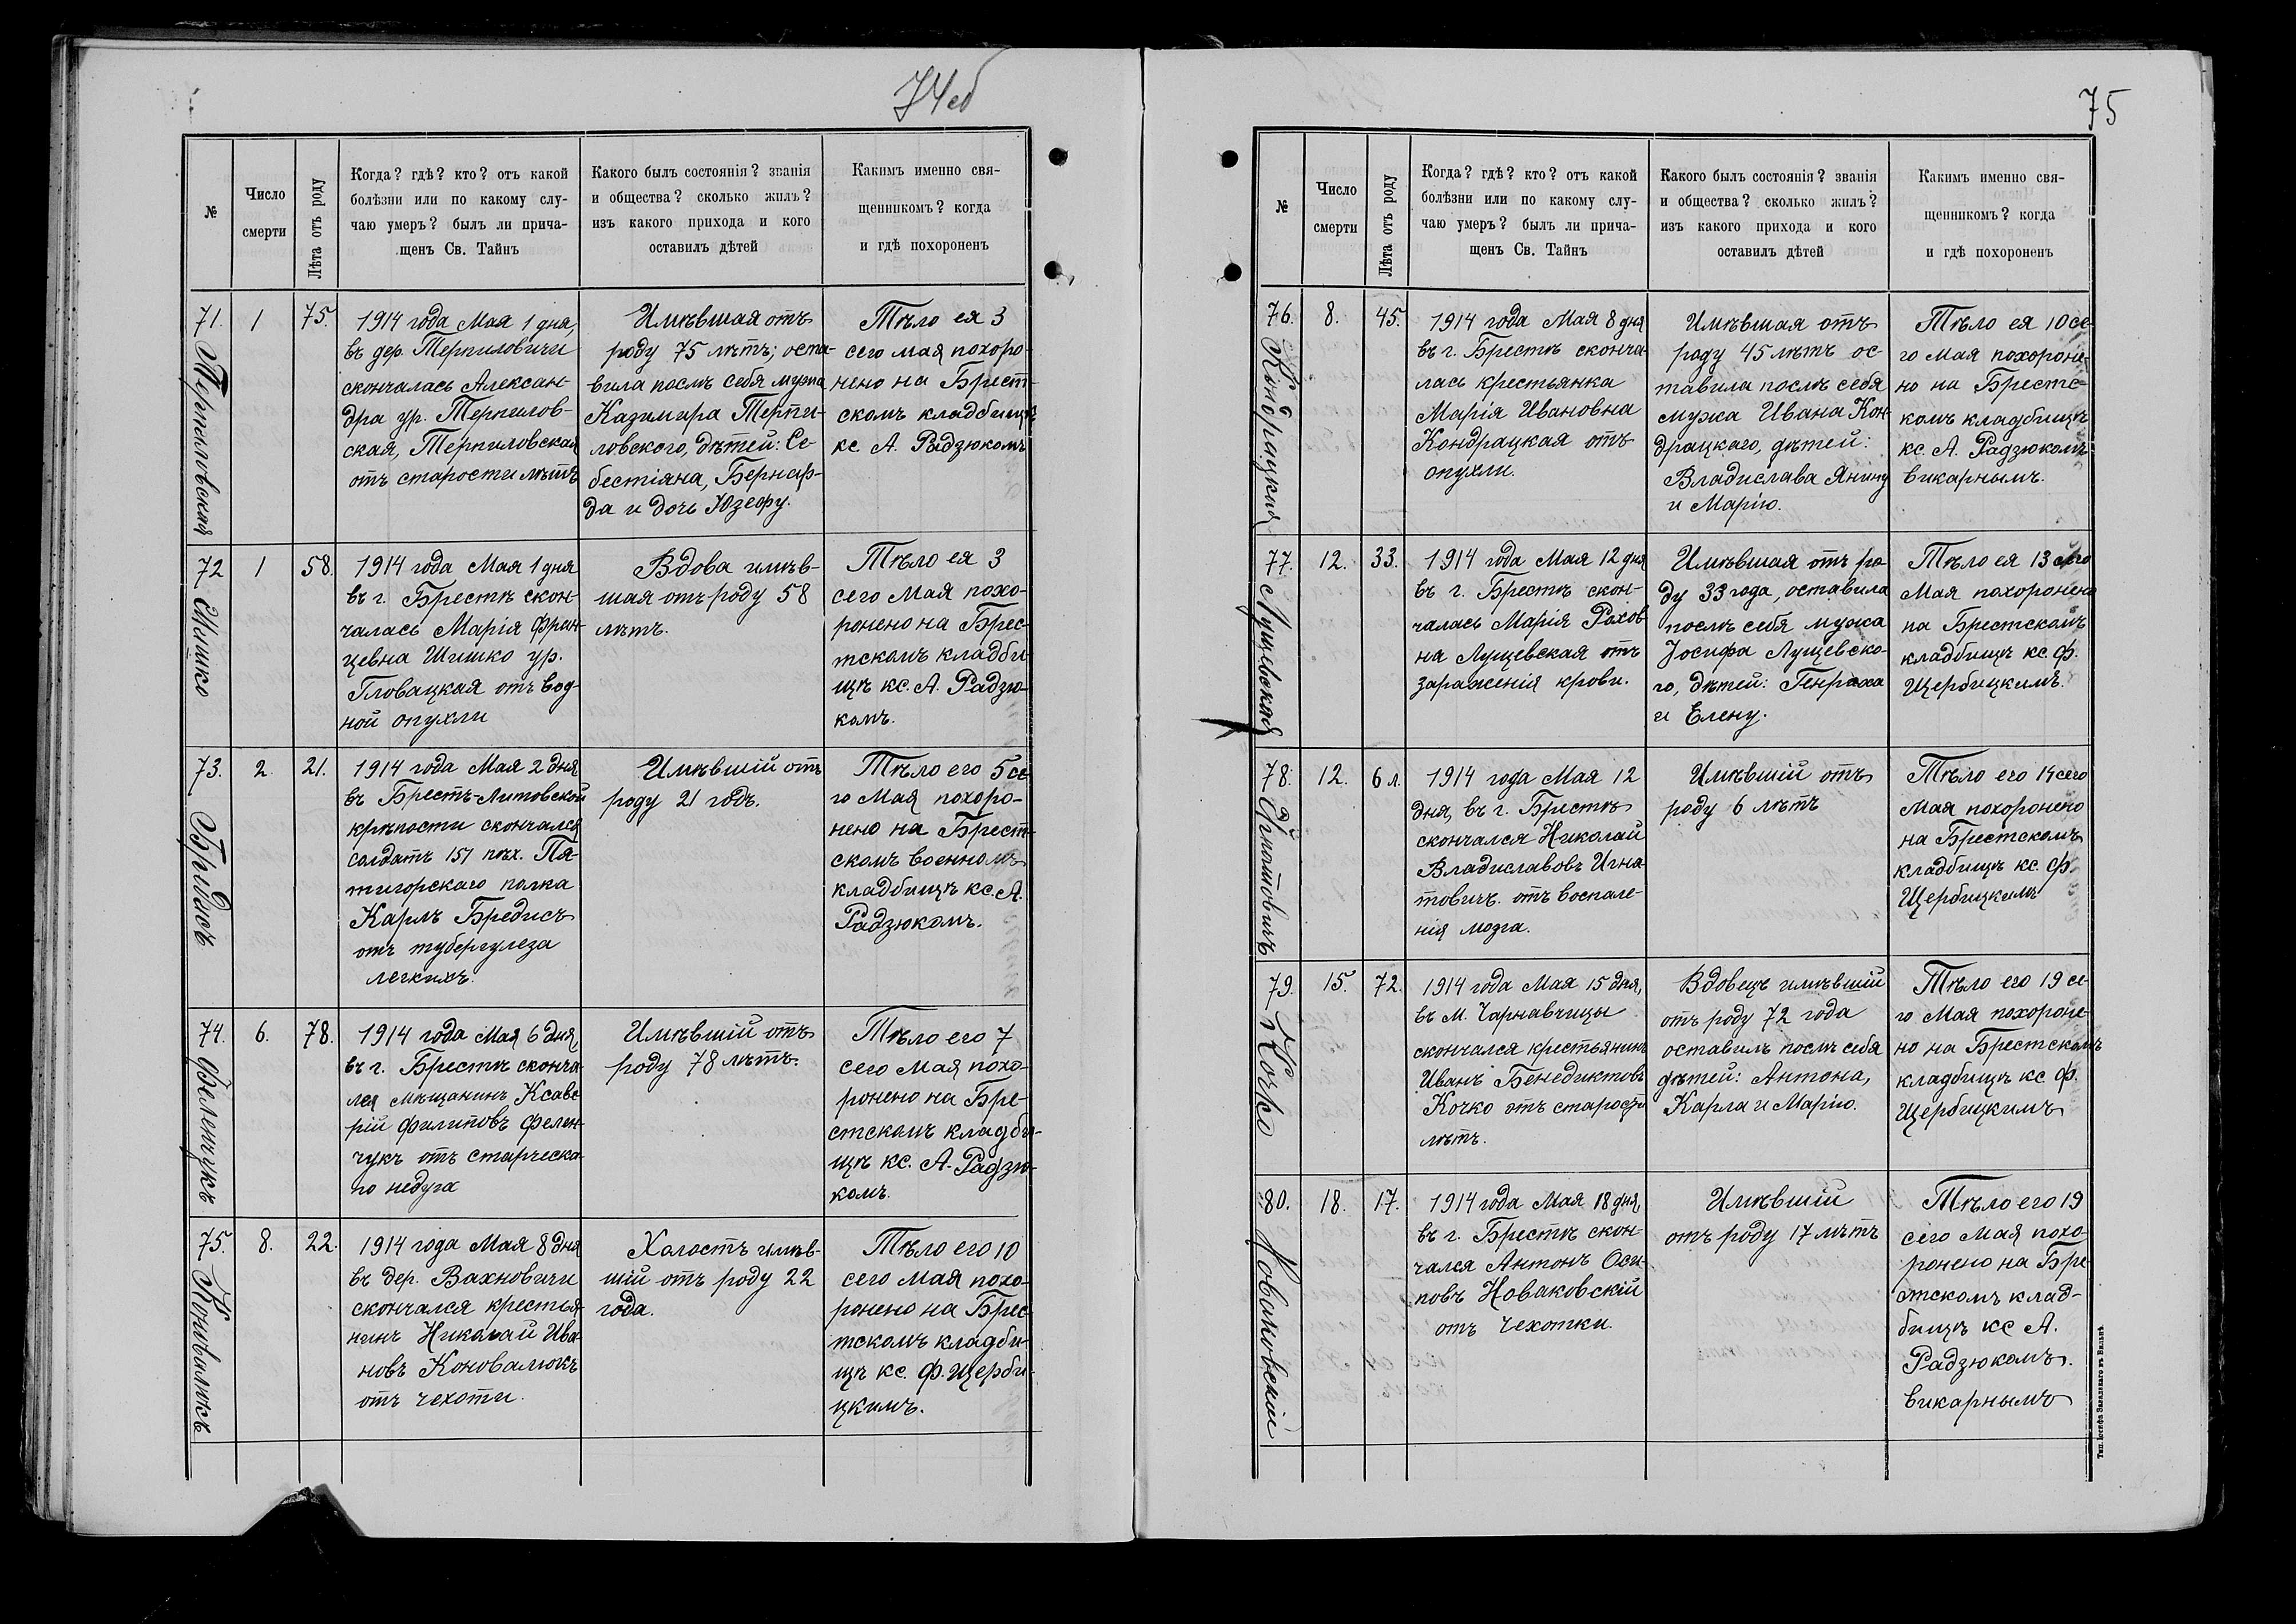 74об
№
Число
смерти
Лѣта отъ роду
Когда? гдѣ? кто? отъ какой
болѣзни или по какому слу-
чаю умеръ? былъ ли прича-
щенъ Св. Тайнъ
Какого былъ состоянія? званія
и общества? сколько жилъ?
изъ какого прихода и кого
оставилъ дѣтей
Какимъ именно свя-
щенникомъ? когда
и гдѣ похороненъ
71.
Терпиловская
1
75.
1914 года Мая 1 дня,
въ дер. Терпиловичи
скончалась Алексан-
дра ур. Терпилов-
ская, Терпиловская
отъ старости лѣтъ
Имѣвшая отъ
роду 75 лѣтъ; оста-
вила послѣ себя мужа
Казимира Терпи-
ловского, дѣтей: Се-
бестіяна, Бернар-
да и дочь Юзефу.
Тѣло ея 3
сего мая похоро-
нено на Брест-
скомъ кладбищѣ
кс. А. Радзюкомъ
72
Шишко
1
58.
1914 года Мая 1 дня
въ г. Брестѣ скон-
чалась Марія Фран-
цевна Шишко ур.
Гловацкая отъ вод-
ной опухли
Вдова имѣв-
шая отъ роду 58
лѣтъ.
Тѣло ея 3
сего Мая похо-
ронено на Брес-
тскомъ кладби-
щѣ кс. А. Радзю-
комъ.
73.
Бредисъ
2.
21.
1914 года Мая 2 дня
въ Брестъ-Литовской
крѣпости скончался
солдатъ 151 пѣх. Пя-
тигорскаго полка
Карлъ Бредисъ
отъ туберкулеза
легкихъ.
Имѣвшій отъ
роду 21 годъ.
Тѣло его 5 се-
го Мая похоро-
нено на Брест-
скомъ военномъ
кладбищѣ кс. А.
Радзюкомъ.
74.
Феленчукъ
6.
78.
1914 года Мая 6 дня,
въ г. Брестѣ сконча-
лся мѣщанинъ Ксаве-
рій Филиповъ Фелен-
чукъ отъ старческа-
го недуга
Имѣвшій отъ
роду 78 лѣтъ.
Тѣло его 7
сего Мая похо-
ронено на Бре-
стскомъ кладби-
щѣ кс. А. Радзю-
комъ.
75.
Коновалюкъ
8.
22.
1914 года Мая 8 дня
въ дер. Вахновичи
скончался крестья-
нинъ Николай Ива-
новъ Коновалюкъ
отъ чехоти.
Холостъ имѣв-
шій отъ роду 22
года.
Тѣло его 10
сего Мая похо-
ронено на Брес-
тскомъ кладби-
щѣ кс. Ф. Щерби-
цкимъ.
75
№
Число
смерти
Лѣта отъ роду
Когда? гдѣ? кто? отъ какой
болѣзни или по какому слу-
чаю умеръ? былъ ли прича-
щенъ Св. Тайнъ
Какого былъ состоянія? званія
и общества? сколько жилъ?
изъ какого прихода и кого
оставилъ дѣтей
Какимъ именно свя-
щенникомъ? когда
и гдѣ похороненъ
76.
Кондрацкая
8.
45.
1914 года Мая 8 дня
въ г. Брестѣ сконча-
лась крестьянка
Марія Ивановна
Кондрацкая отъ
опухли.
Имѣвшая отъ
роду 45 лѣтъ ос-
тавила послѣ себя
мужа Ивана Кон-
драцкаго, дѣтей:
Владислава Янину
и Марію.
Тѣло ея 10 се-
го Мая похороне-
но на Брестс-
комъ кладбищѣ
кс. А. Радзюкомъ
викарнымъ.
77.
Лущевская
12.
33.
1914 года Мая 12 дня
въ г. Брестѣ скон-
чалась Марія Рохов-
на Лущевская отъ
зараженія крови.
Имѣвшая отъ ро-
ду 33 года, оставила
послѣ себя мужа
Іосифа Лущевско-
го, дѣтей: Генриха
и Елену.
Тѣло ея 13 сего
Мая похоронено
на Брестскомъ
кладбищѣ кс. Ф.
Щербицкимъ.
78.
Игнатовичъ
12.
6 л.
1914 года Мая 12
дня, въ г. Брестѣ
скончался Николай
Владиславовъ Игна-
товичъ. отъ воспале-
нія мозга.
Имѣвшій отъ
роду 6 лѣтъ
Тѣло его 14 сего
Мая похоронено
на Брестскомъ
кладбищѣ кс. Ф.
Щербицкимъ
79.
Кочко
15.
72.
1914 года Мая 15 дня,
въ М. Чарнавчицы
скончался крестьянинъ
Иванъ Бенедиктовъ
Кочко отъ старости
лѣтъ.
Вдовецъ имѣвшій
отъ роду 72 года
оставилъ послѣ себя
дѣтей: Антона,
Карла и Марію.
Тѣло его 19 се-
го Мая похороне-
но на Брестскомъ
кладбищѣ кс. Ф.
Щербицкимъ
80.
Новаковскій
18.
17.
1914 года Мая 18 дня,
въ г. Брестѣ скон-
чался Антонъ Оси-
повъ Новаковскій
отъ чехотки.
Имѣвшій
отъ роду 17 лѣтъ
Тѣло его 19
сего Мая похо-
ронено на Бре-
стскомъ клад-
бищѣ кс А.
Радзюкомъ.
викарнымъ
Тип. Іосифа Завадзкаго въ Вильнѣ.